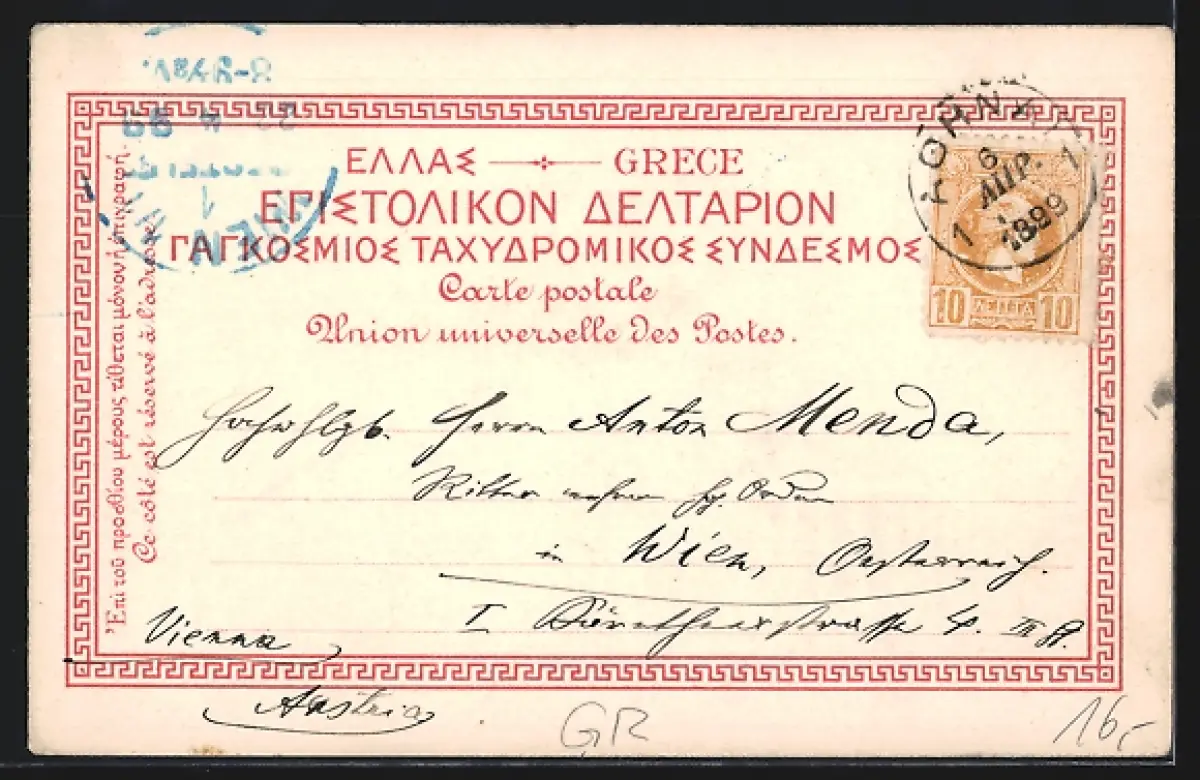 ΕΛΛΑΣ GRECE
ΕΠΙΣΤΟΛΙΚΟΝ ΔΕΛΤΑΡΙΟΝ
ΓΑΓΚΟΣΜΙΟΣ ΤΑΧΥΔΡΟΜΙΚΟΣ ΣΥΝΔΕΣΜΟΣ
Carte postale
Union universelle des Postes.
Ἐπὶ τοῦ προσθίου μέρους τίθεται μόνον ἡ ἐπιγραφή.
Ce côté est réservé à l'adresse
ΑΘΗΝΑΙ
6
ΑΠΡ.
1899
1 1
10 ΛΕΠΤΑ 10
WIEN
99
Hochwohlgb. Herrn Anton Menda,
Ritter
in Wien, Oesterreich.
I Kärnthnerstrasse 4.
Vienna
Austria
GR
16,-